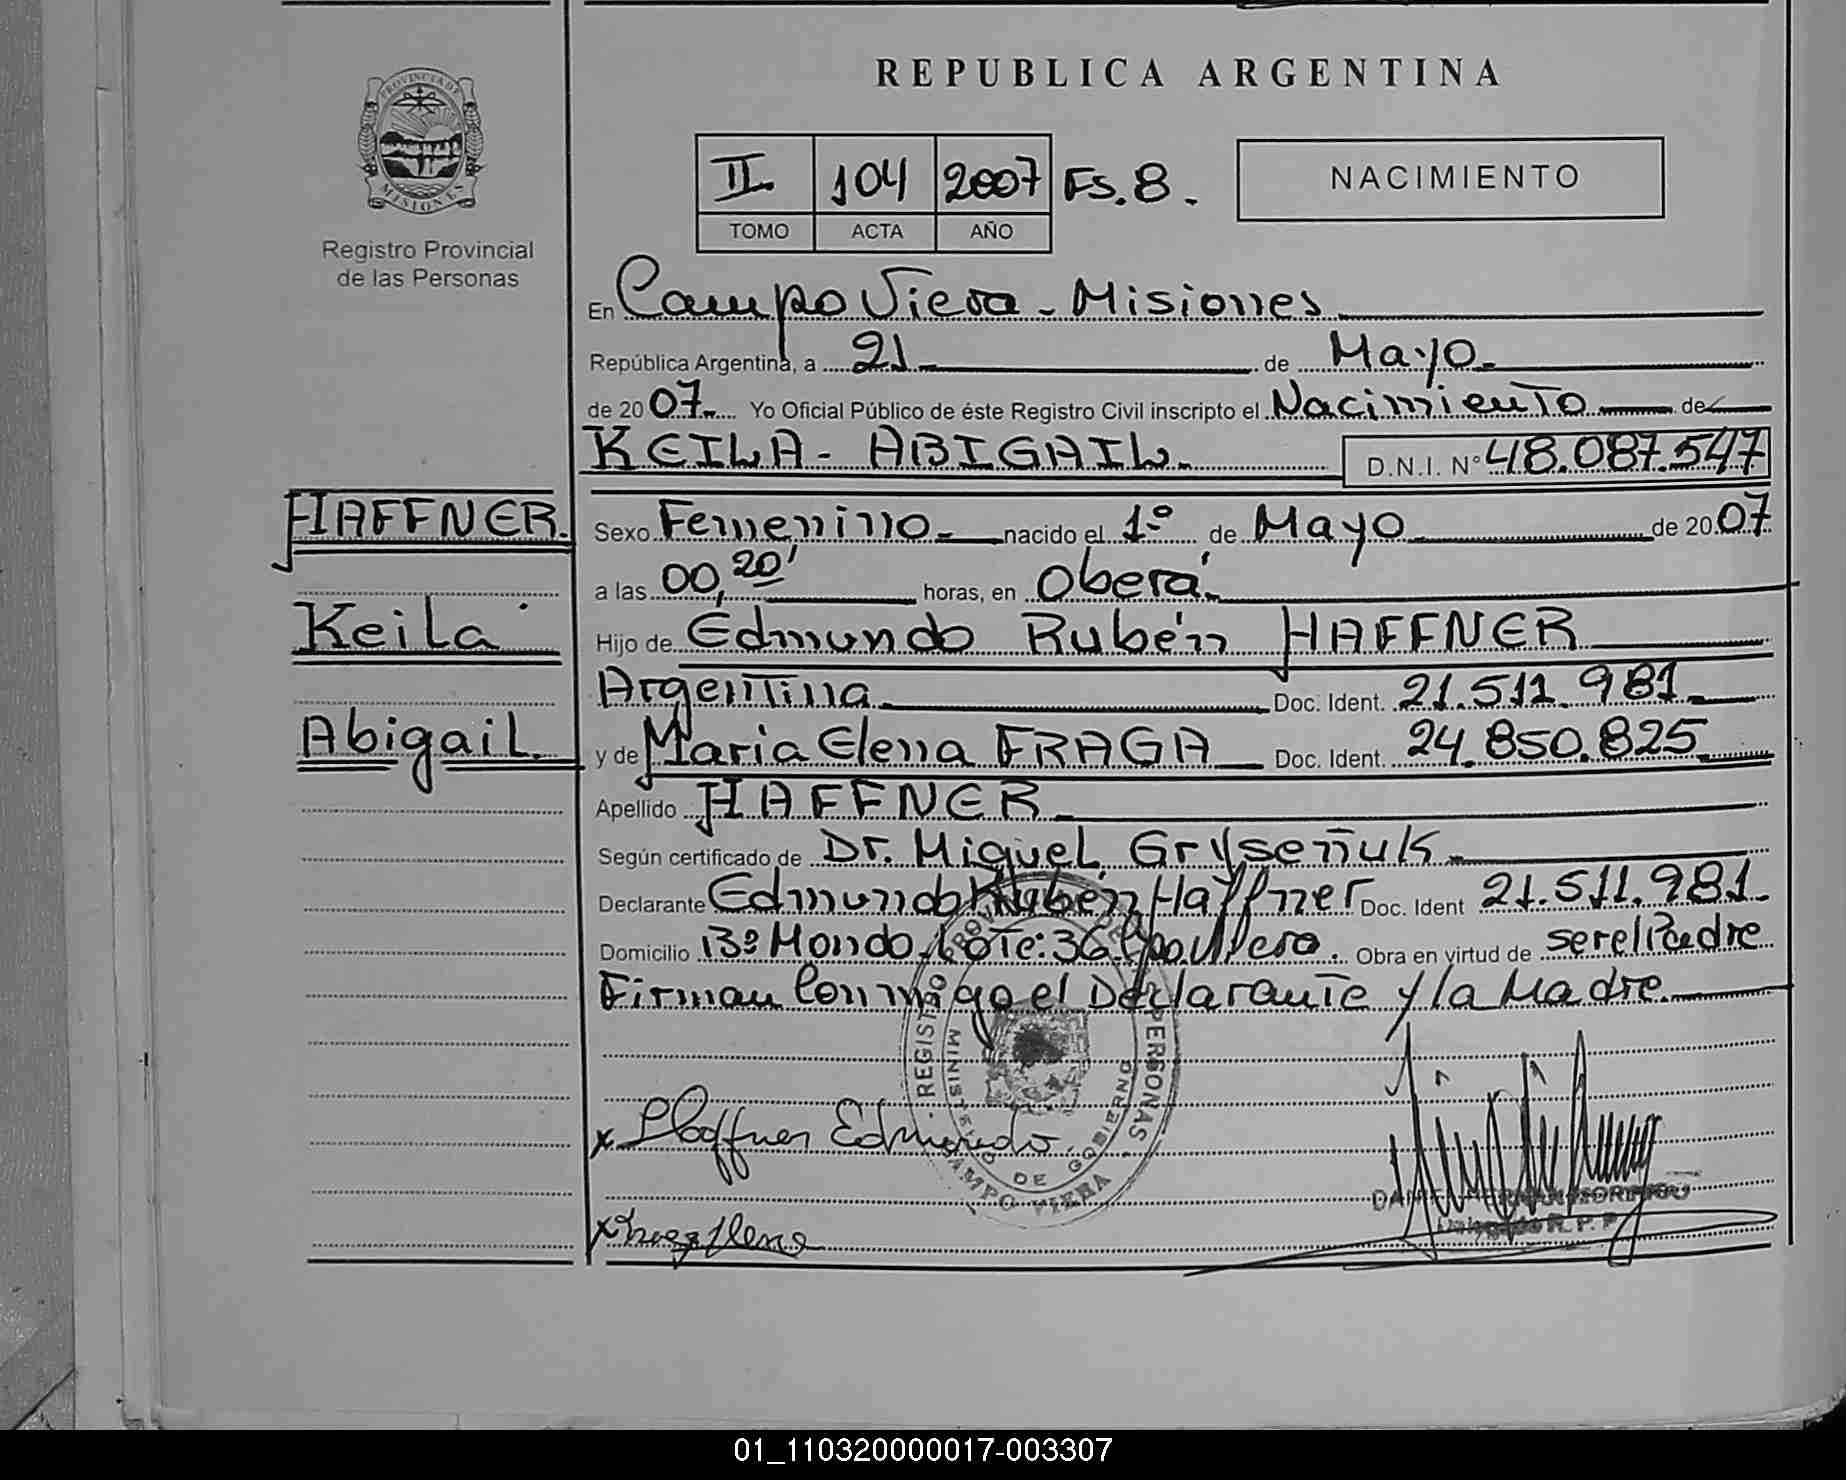 REPUBLICA ARGENTINA
PROVINCIA DE
MISIONES
Registro Provincial
de las Personas
II. 104 2007 FS. 8.
TOMO ACTA AÑO
NACIMIENTO
En Campo Viera - Misiones
República Argentina, a 21 de Mayo
de 2007 Yo Oficial Público de éste Registro Civil inscripto el Nacimiento de
KEILA - ABIGAIL. D.N.I. N° 48.087.547
HAFFNER.
Keila
Abigail.
Sexo Femenino nacido el 1º de Mayo de 2007
a las 00,20' horas, en Oberá
Hijo de Edmundo Rubén HAFFNER
Argentina Doc. Ident. 21.511.981
y de Maria Elena FRAGA Doc. Ident. 24.850.825
Apellido HAFFNER
Según certificado de Dr. Miguel
Declarante Edmundo Rubén Haffner Doc. Ident 21.511.981.
Domicilio Bº Mondo Lote: 36 Cpo Viera. Obra en virtud de ser el Padre
Firman Conmigo el Declarante y la Madre.
REGISTRO PROVINCIAL DE LAS PERSONAS
MINISTERIO DE GOBIERNO
CAMPO VIERA
x Haffner Edmundo
x Fraga Elena
Delegado R. P. P.
01_110320000017-003307